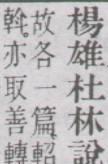 楊雄杜林說
故各一篇軺
斡亦取善轉